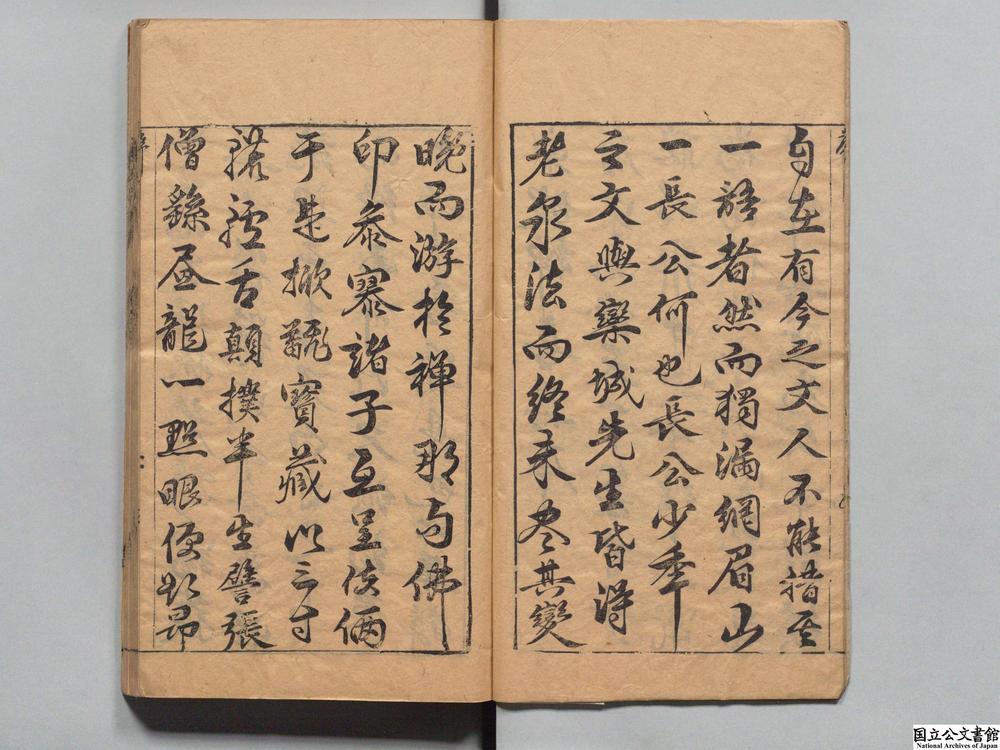 自在有今之文人不能措其
一語者然而獨漏網眉山
一長公何也長公少年
之文與欒城先生皆得
老泉法而終未尽其變
晚而游於禪那与佛
印參寥諸子互呈伎倆
于是掀翻寶藏以三寸
舌顛撲半生譬張
僧繇畫龍一點眼便
昂
国立公文書館
National Archives of Japan